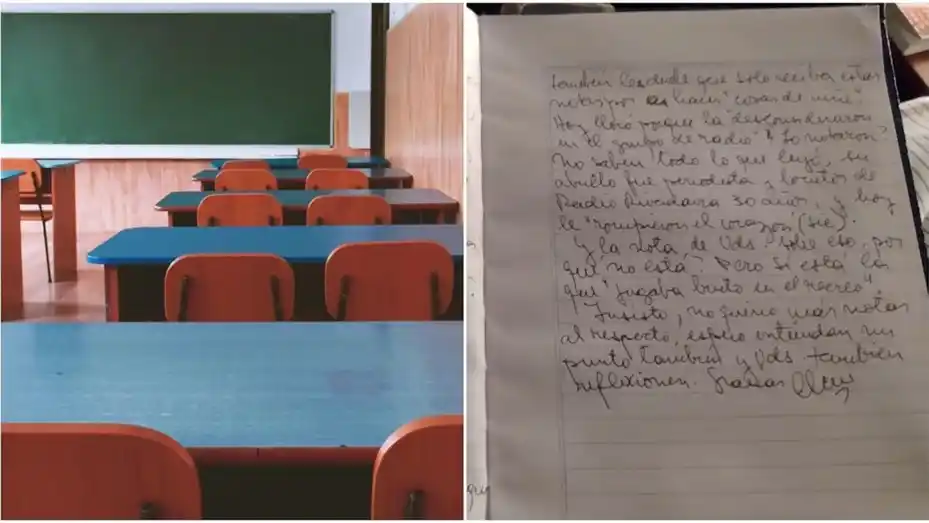 también les duele que solo reciba estas
notas por hacer "cosas de
Hoy lloró porque la "desconsideraron
en el grupo de radio" Lo notaron?
No saben todo lo que leyó, su
abuelo fue periodista y locutor de
Radio Rivadavia 30 años, y hoy
le "rompieron el corazón (sic).
Y la nota de Uds sobre eso, por
qué no está? Pero sí está la
que "jugaba bruto en el recreo".
Insisto, no quiero más notas
al respecto, espero entiendan mi
punto también y Uds también
reflexionen. Gracias